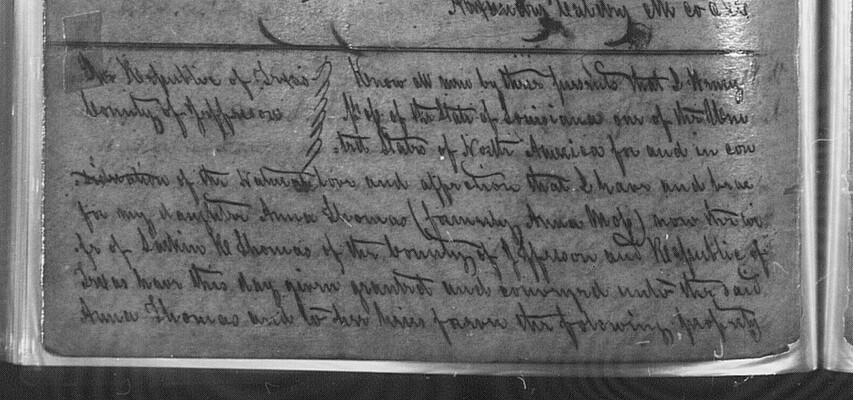 The Republic of Texas
County of Jefferson
Know all men by these presents that I Henry
of the State of Louisiana one of the Uni
ted States of North America for and in con
sideration of the Natural love and affection that I have and bear
for my daughter Anna Thomas (formerly Anna) now the wi
fe of K Thomas of the County of Jefferson and Republic of
Texas have this day given granted and conveyed unto the said
Anna Thomas and to her heirs forever the folowing property